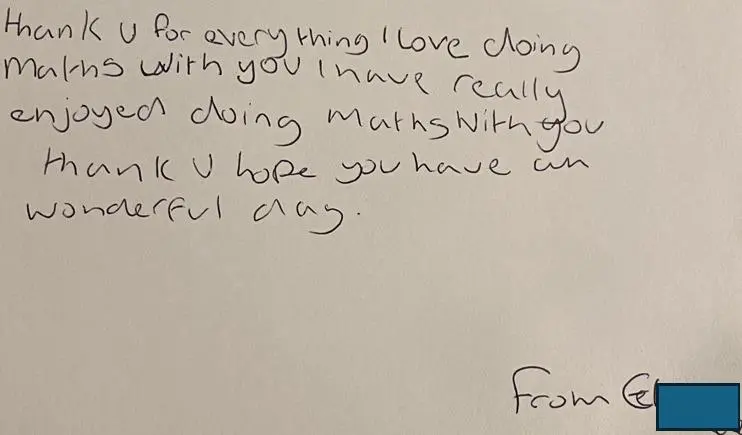 thank u for everything I love doing
Maths with you I have really
enjoyed doing Maths With you
thank U hope you have an
wonderful day.
From El